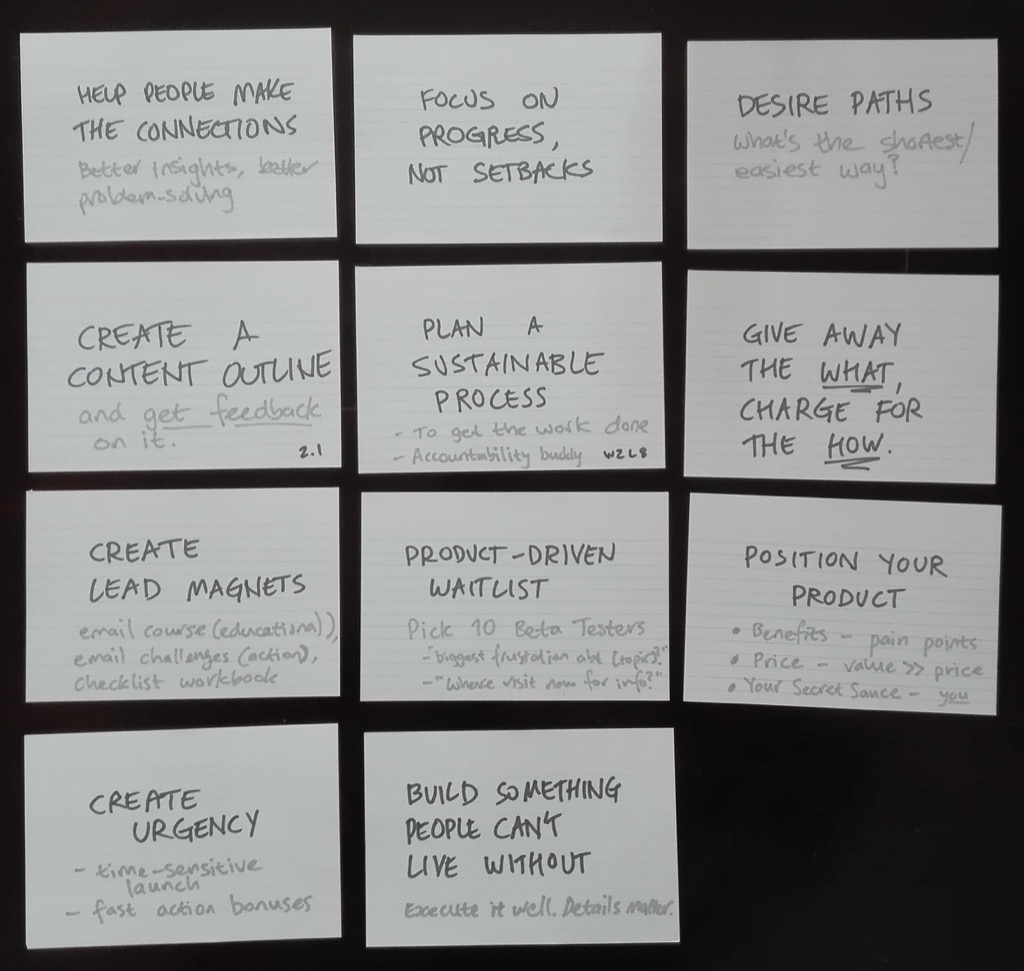 HELP PEOPLE MAKE
THE CONNECTIONS
Better insights, better
problem-solving
FOCUS ON
PROGRESS,
NOT SETBACKS
DESIRE PATHS
What's the shortest/
easiest way?
CREATE A
CONTENT OUTLINE
and get feedback
on it.
2.1
PLAN A
SUSTAINABLE
PROCESS
- To get the work done
- Accountability buddy W2L8
GIVE AWAY
THE WHAT,
CHARGE FOR
THE HOW.
CREATE
LEAD MAGNETS
email course (educational),
email challenges (action),
checklist workbook
PRODUCT-DRIVEN
WAITLIST
Pick 10 Beta Testers
- "biggest frustration abt [topic]?"
- "Where visit now for info?"
POSITION YOUR
PRODUCT
• Benefits - pain points
• Price - value >> price
• Your Secret Sauce - you
CREATE
URGENCY
- time-sensitive
launch
- fast action bonuses
BUILD SOMETHING
PEOPLE CAN'T
LIVE WITHOUT
Execute it well. Details matter.